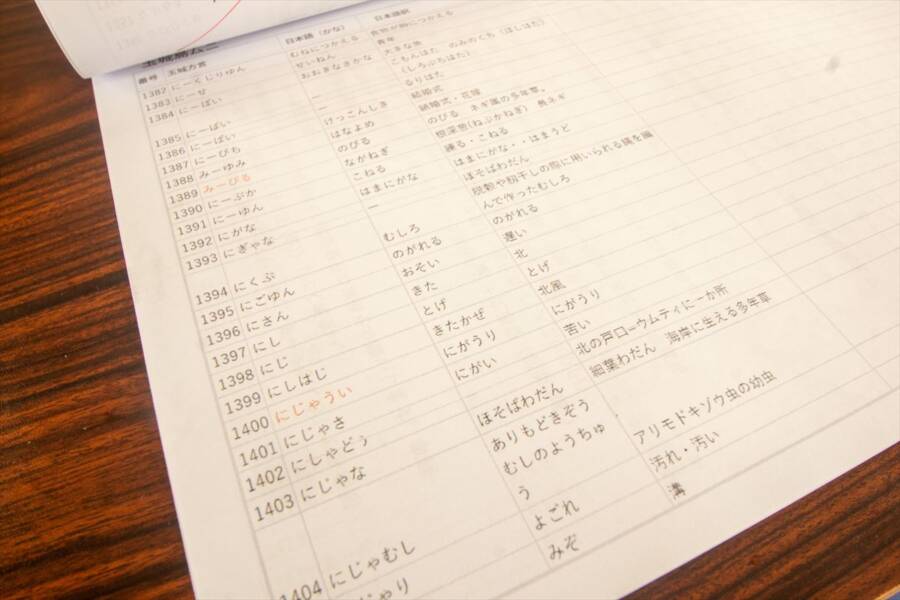 番号 玉城方言 日本語(かな) 日本語訳
1382 にーくじりゅん むねにつかえる 食物が胸につかえる
1383 にーせ せいねん 青年
1384 にーばい おおきなさかな 大きな魚
ー こもんはた のみのくち(ほしはた)
(しろぶちはた)
1385 にーばい ー るりはた
1386 にーばい けっこんしき 結婚式
1387 にーびち はなよめ 結婚式・花嫁
1388 みーゆみ
1389 みーびる のびる のびる ネギ属の多年草。
1390 にーぶか ながねぎ 根深葱(ねぶかねぎ) 長ネギ
1391 にーゆん こねる 練る・こねる
1392 にがな はまにがな はまにがな・・はまうど
1393 にぎゃな ー ほそばわだん
脱穀や籾干しの際に用いられる藁を編
1394 にくぶ むしろ んで作ったむしろ
1395 にごゆん のがれる のがれる
1396 にさん おそい 遅い
1397 にし きた 北
1398 にじ とげ とげ
1399 にしはじ きたかぜ 北風
1400 にじゃうい にがうり にがうり
1401 にじゃさ にがい 苦い
1402 にしゃどぅ 北の戸口ーウムティに一か所
1403 にじゃな ほそばわだん 細葉わだん 海岸に生える多年草
ありもどきぞう
むしのようちゅ
1404 にじゃむし う アリモドキゾウ虫の幼虫
じゃり よごれ 汚れ・汚い
みぞ 溝